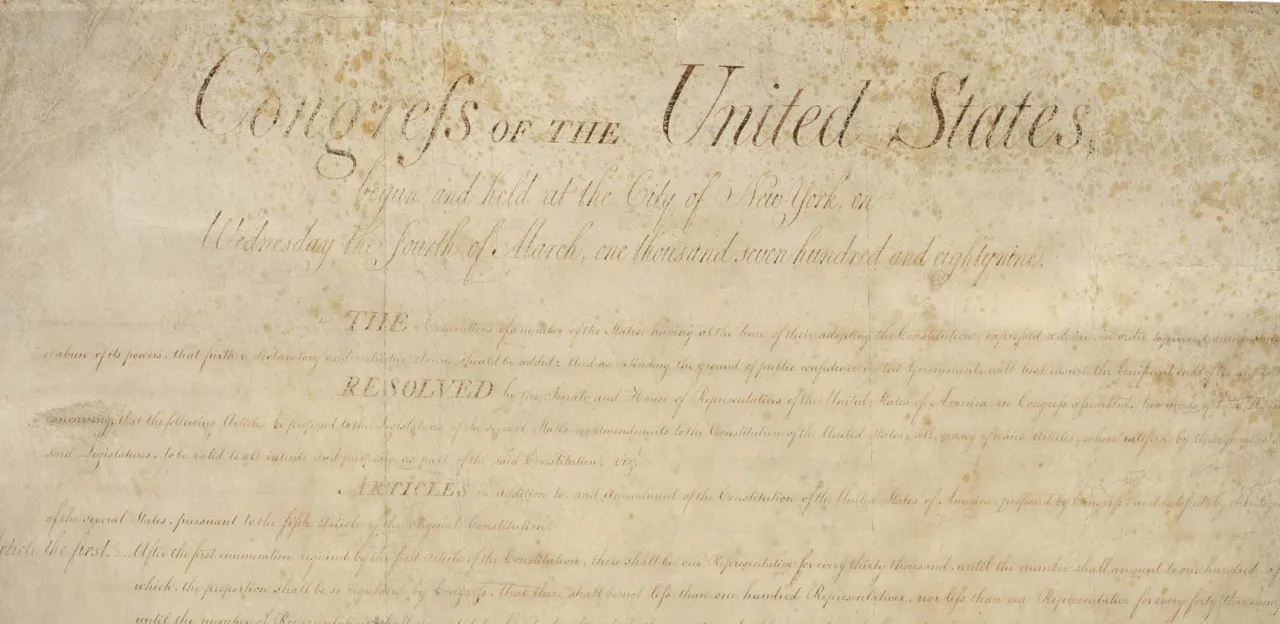 Congreſs OF THE United States,
begun and held at the City of New-York, on
Wednesday the fourth of March, one thousand seven hundred and eighty nine.
THE Conventions of a number of the States, having at the time of their adopting the Constitution, expreſsed a desire, in order to prevent
abuse of its powers, that further declaratory and restrictive clauses should be added: And as extending the ground of public confidence in the Government, will best ensure the beneficent ends of
RESOLVED by the Senate and House of Representatives of the United States of America, in Congreſs aſsembled, two thirds of
concurring, that the following Articles be proposed to the Legislatures of the several States, as amendments to the Constitution of the United States, all, or any of which Articles, when ratified by three fourths of
said Legislatures, to be valid to all intents and purposes, as part of the said Constitution; viz.t
ARTICLES in addition to, and Amendment of the Constitution of the United States of America, proposed by Congreſs, and ratified by the
of the several States, pursuant to the fifth Article of the original Constitution.
the first... After the first enumeration required by the first Article of the Constitution, there shall be one Representative for every thirty thousand, until the number shall amount to one hundred,
which, the proportion shall be so regulated by Congreſs, that there shall be not leſs than one hundred Representatives, nor leſs than one Representative for every forty
until the number of Representatives shall amount to